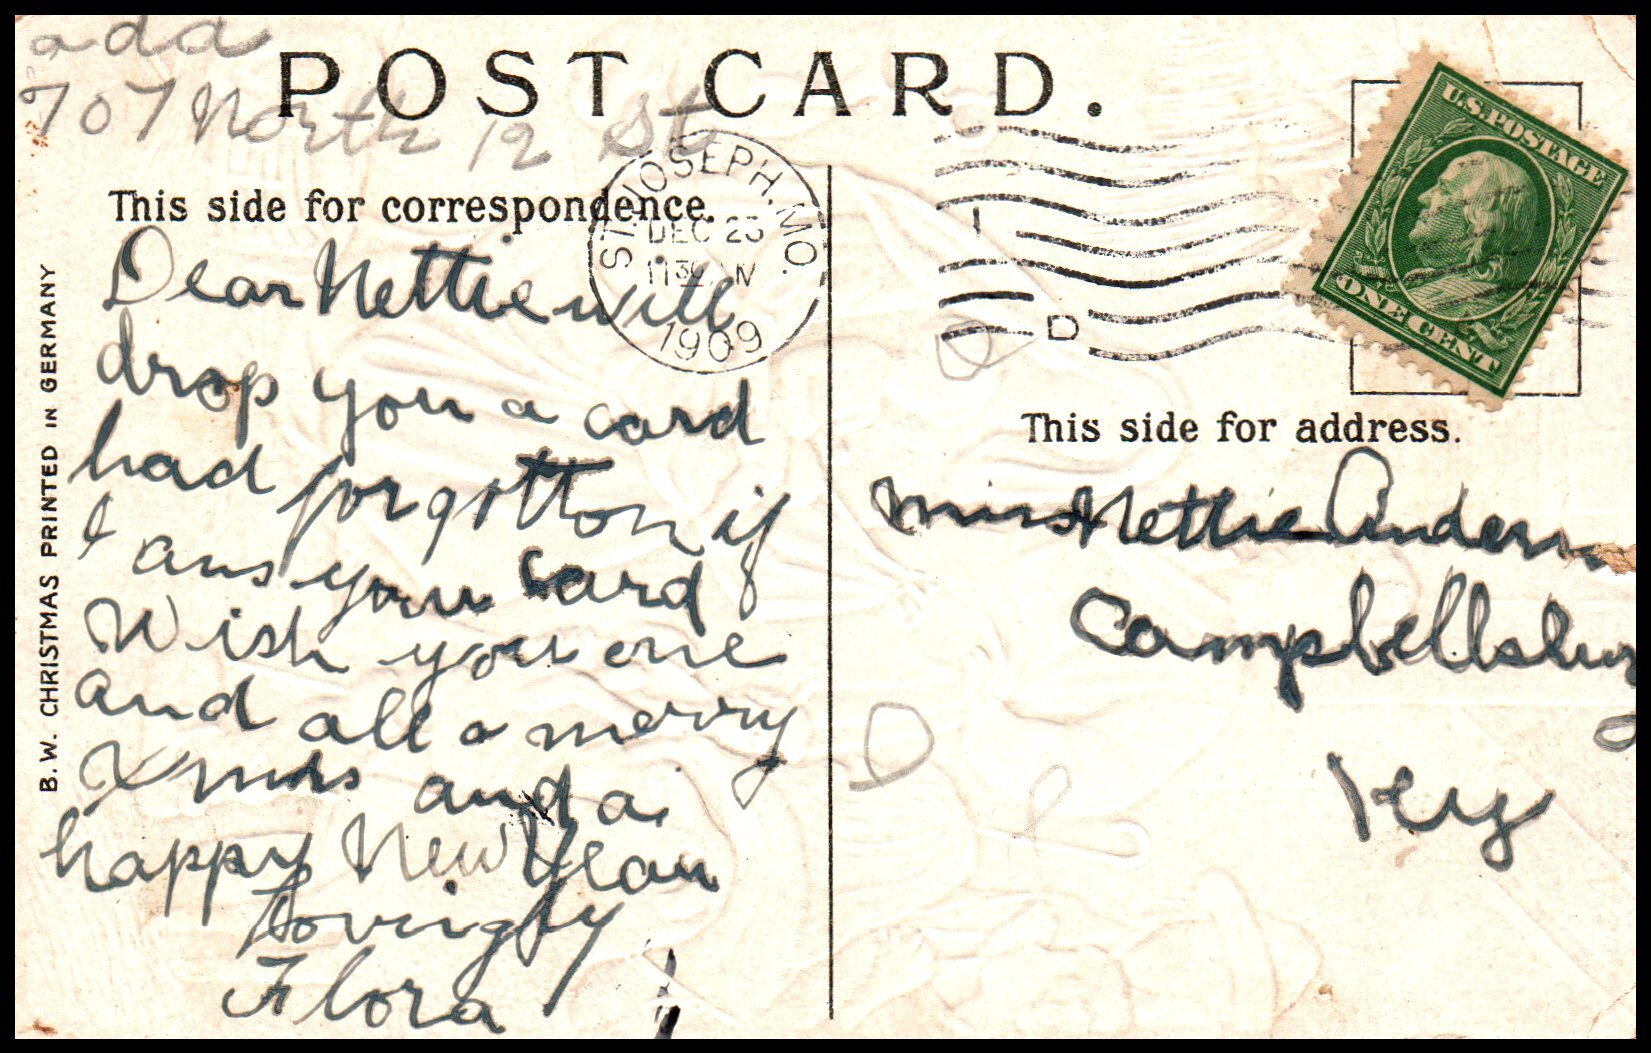 add
707 North 12 St
POST CARD.
This side for correspondence.
ST. JOSEPH, MO.
DEC 23
1130 AM
1909
I
D
U.S. POSTAGE
ONE CENT
Dear Nettie will
drop you a card
had forgotton if
I ans your card
Wish you one
and all a merry
Xmas and a
happy New Year
Lovingly
Flora
B. W. CHRISTMAS PRINTED IN GERMANY
This side for address.
Miss Nettie Anderson
Campbellsburg
Ky